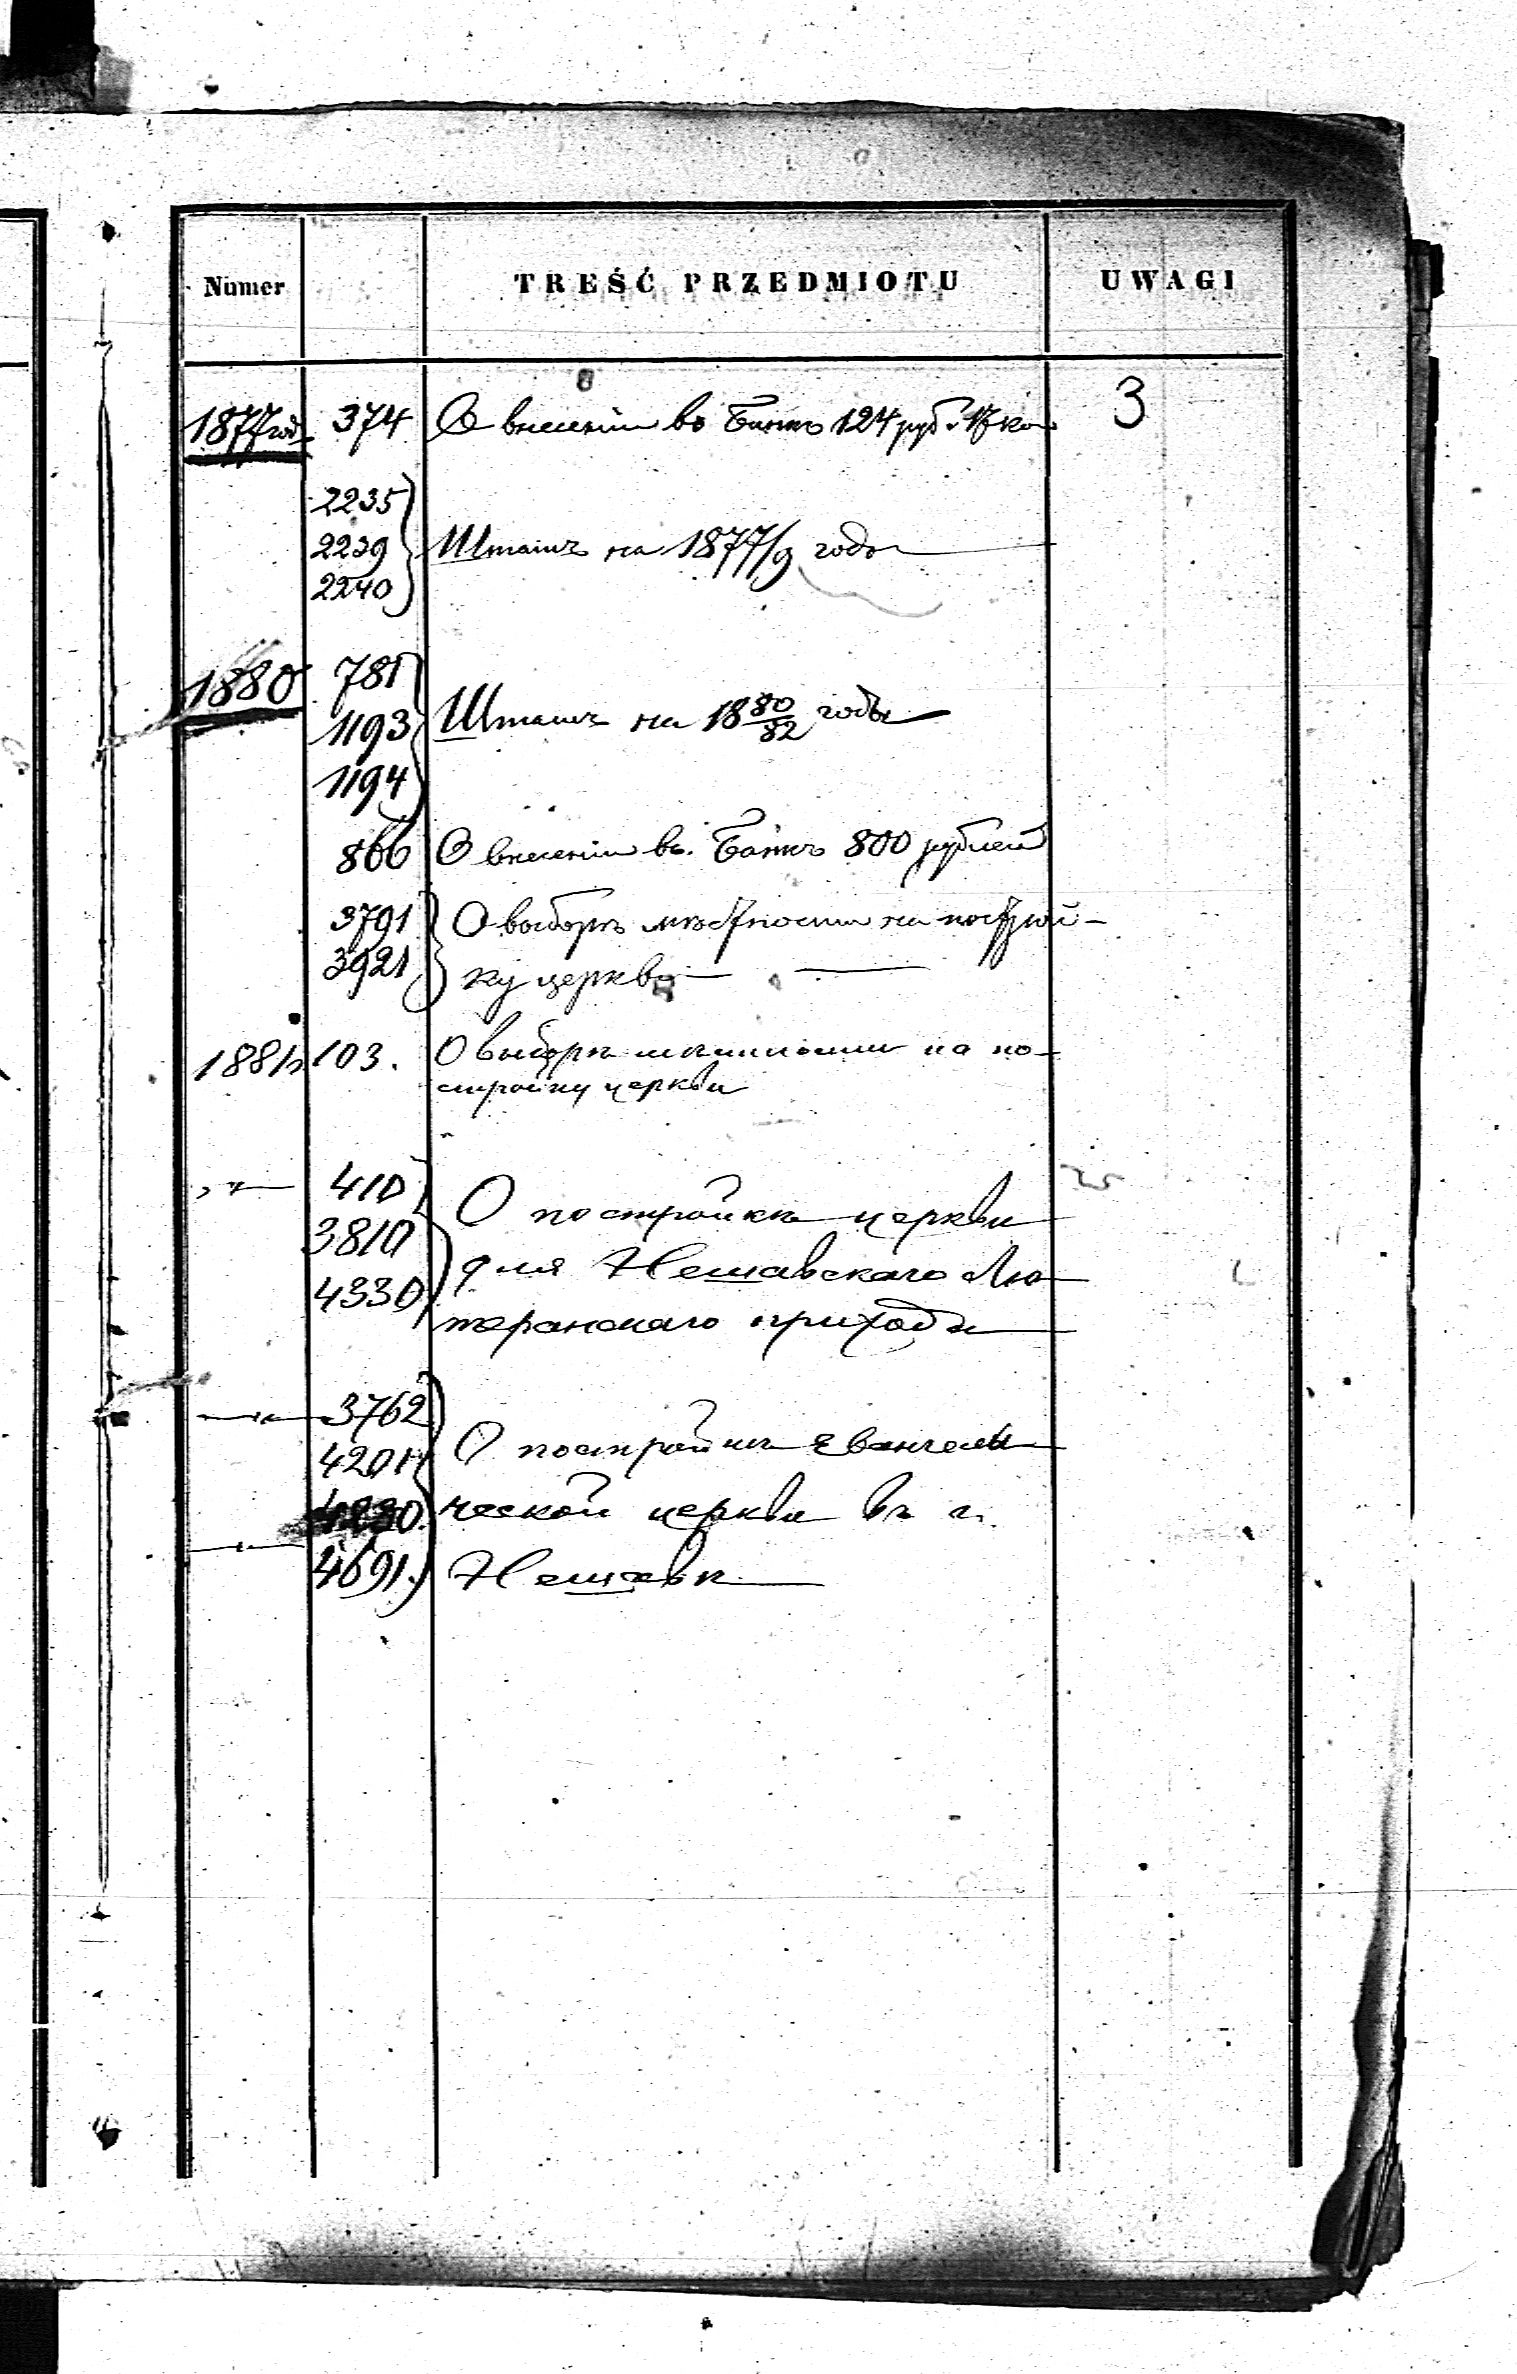 Numer TREŚĆ PRZEDMIOTU UWAGI
3
1877 год 374 О внесеніи въ Банкъ 124 руб. 17 ко
2235
2239 Штатъ на 1877/9 года
2240
1880 781
1193 Штатъ на 18 80/82 годы
1194
866 О внесеніи въ Банкъ 800 рублей
3791 О выборѣ мѣстности на построй-
3921 ку церкви
1881 103. О выборѣ мѣстности на по-
стройку церкви
410
3810 О постройкѣ церкви
4330 для Нешавскаго Лю
теранскаго прихода
3762
4201 О постройкѣ Евангели
4230. ческой церкви въ г.
4691. Нешавѣ